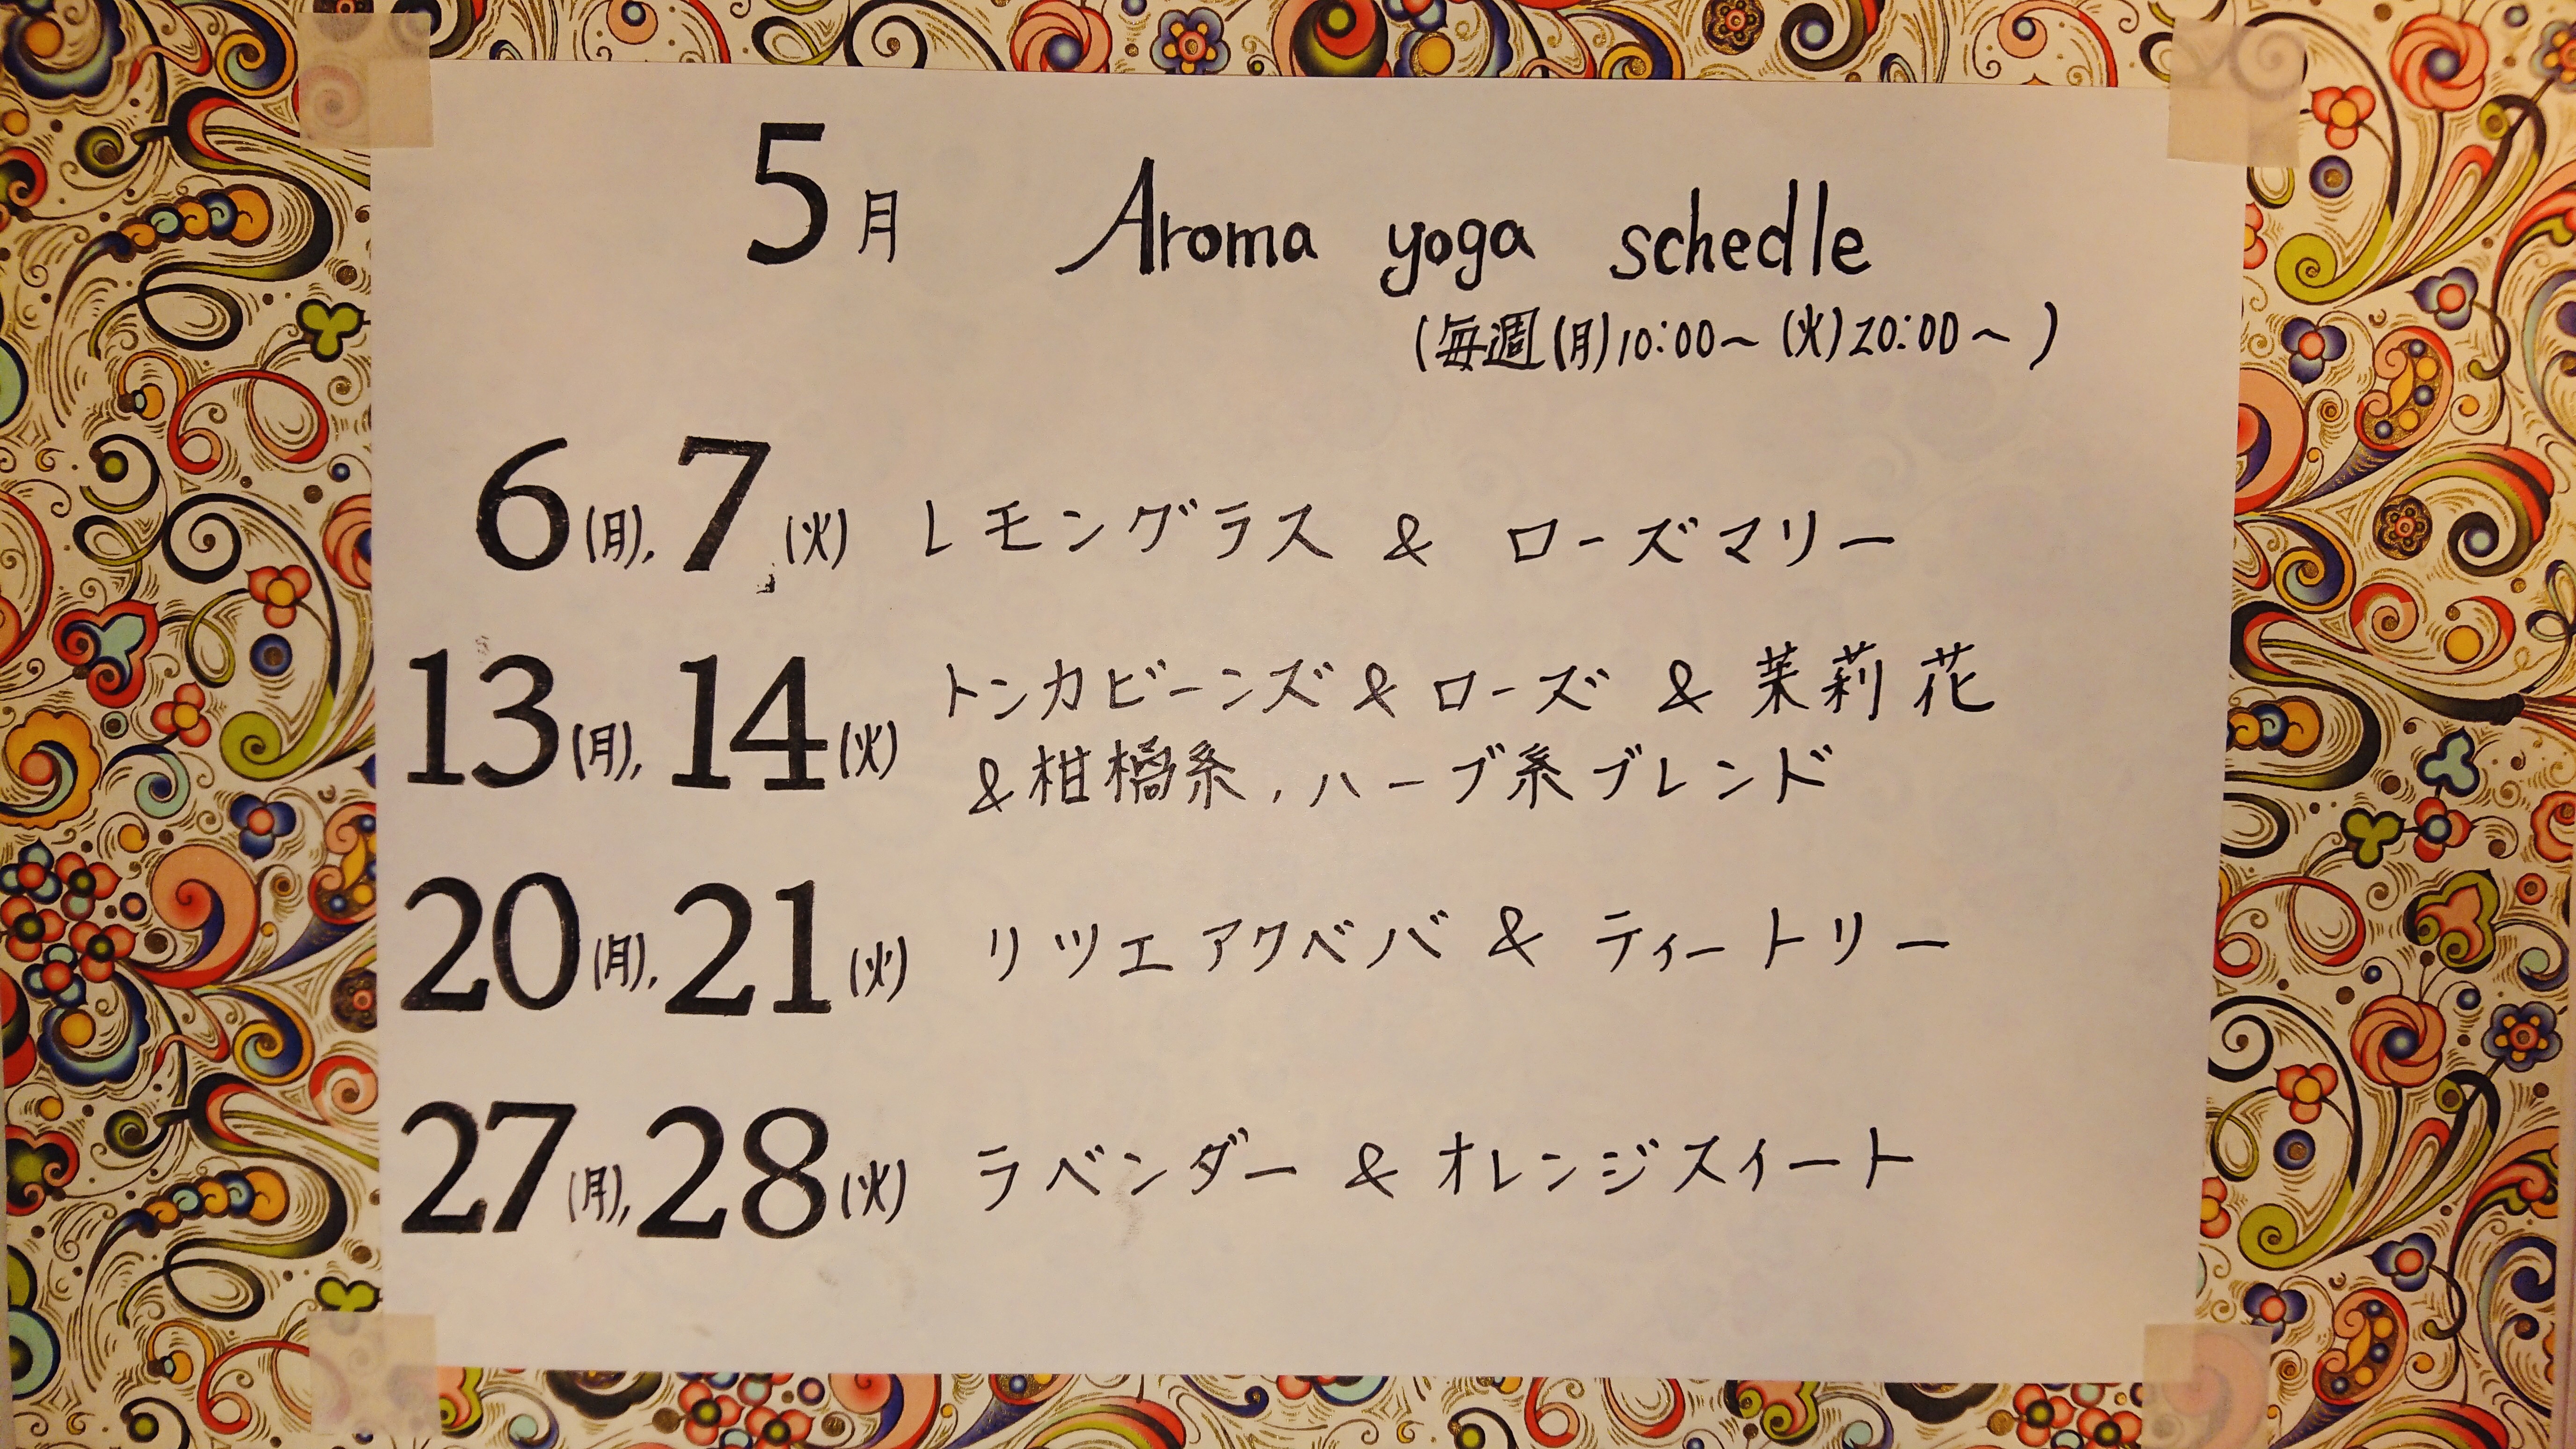 5月 Aroma yoga schedle
(毎週(月)10:00〜 (火)20:00〜 )
6(月), 7(火) レモングラス & ローズマリー
13(月), 14(火) トンカビーンズ & ローズ & 茉莉花
& 柑橘系, ハーブ系ブレンド
20(月), 21(火) リツエアクベバ & ティートリー
27(月), 28(火) ラベンダー & オレンジスイート